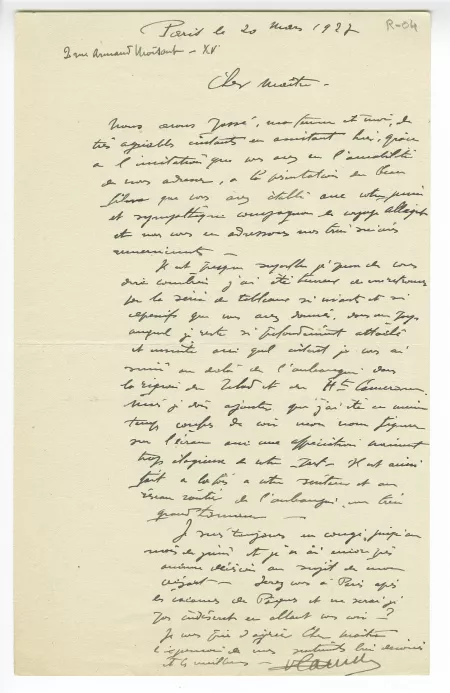 Paris le 20 mars 1927
R-04
2 rue Armand Moisant - XV
Cher Maître -
Nous avons passé, ma femme et moi, de
très agréables instants en assistant hier, grâce
à l'invitation que vous avez eu l'amabilité
de nous adresser, à la présentation du beau
film que vous avez établi avec votre
et sympathique compagnon de voyage Allégret
et nous vous en adressons nos très sincères
remerciements -
Il est presque superflu je pense de vous
dire combien j'ai été heureux de
par la série de tableaux si vivants et si
que vous avez donnés, dans un pays
auquel je reste si profondément attaché
et ensuite avec quel intérêt je vous ai
suivi au delà de l'Oubangui dans
la région du Tchad et du Ht Cameroun.
Mais je dois ajouter que j'ai été en même
temps confus de voir mon nom figurer
sur l'écran avec une appréciation vraiment
trop élogieuse de votre part - Il est ainsi
fait à la fois à votre serviteur et au
réseau routier de l'Oubangui un très
grand honneur -
Je suis toujours en congé jusqu'au
mois de juin et je n'ai encore pris
aucune décision au sujet de mon
départ - Serez vous à Paris après
les vacances de Pâques et ne serai-je
pas indiscret en allant vous voir ?
Je vous prie d'agréer Cher Maître
l'expression de mes sentiments bien dévoués
et les meilleurs -